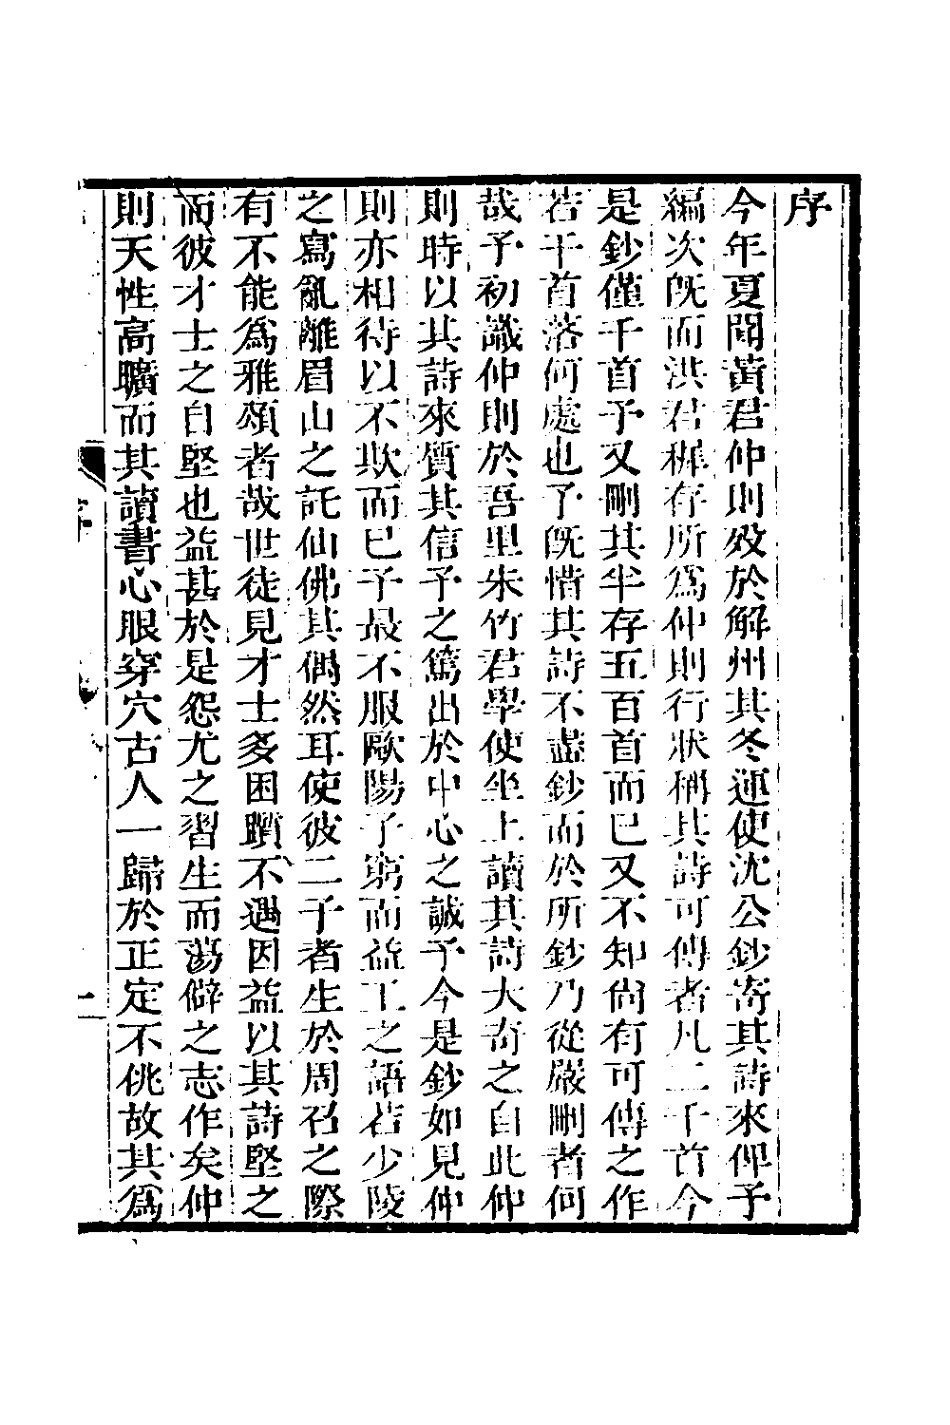 序
今年夏聞黃君仲則歿於解州其冬運使沈公鈔寄其詩來俾予
編次旣而洪君穉存所爲仲則行狀稱其詩可傳者凡二千首今
是鈔僅千首予又刪其半存五百首而已又不知尙有可傳之作
若干首落何處也予旣惜其詩不盡鈔而於所鈔乃從嚴刪者何
哉予初識仲則於吾里朱竹君學使坐上讀其詩大奇之自此仲
則時以其詩來質其信予之篤出於中心之誠予今是鈔如見仲
則亦相待以不欺而已予最不服歐陽子窮而益工之語若少陵
之寫亂離眉山之託仙佛其偶然耳使彼二子者生於周召之際
有不能爲雅頌者哉世徒見才士多困躓不遇因益以其詩堅之
而彼才士之自堅也益甚於是怨尤之習生而蕩僻之志作矣仲
則天性高曠而其讀書心眼穿穴古人一歸於正定不佻故其爲
序
二